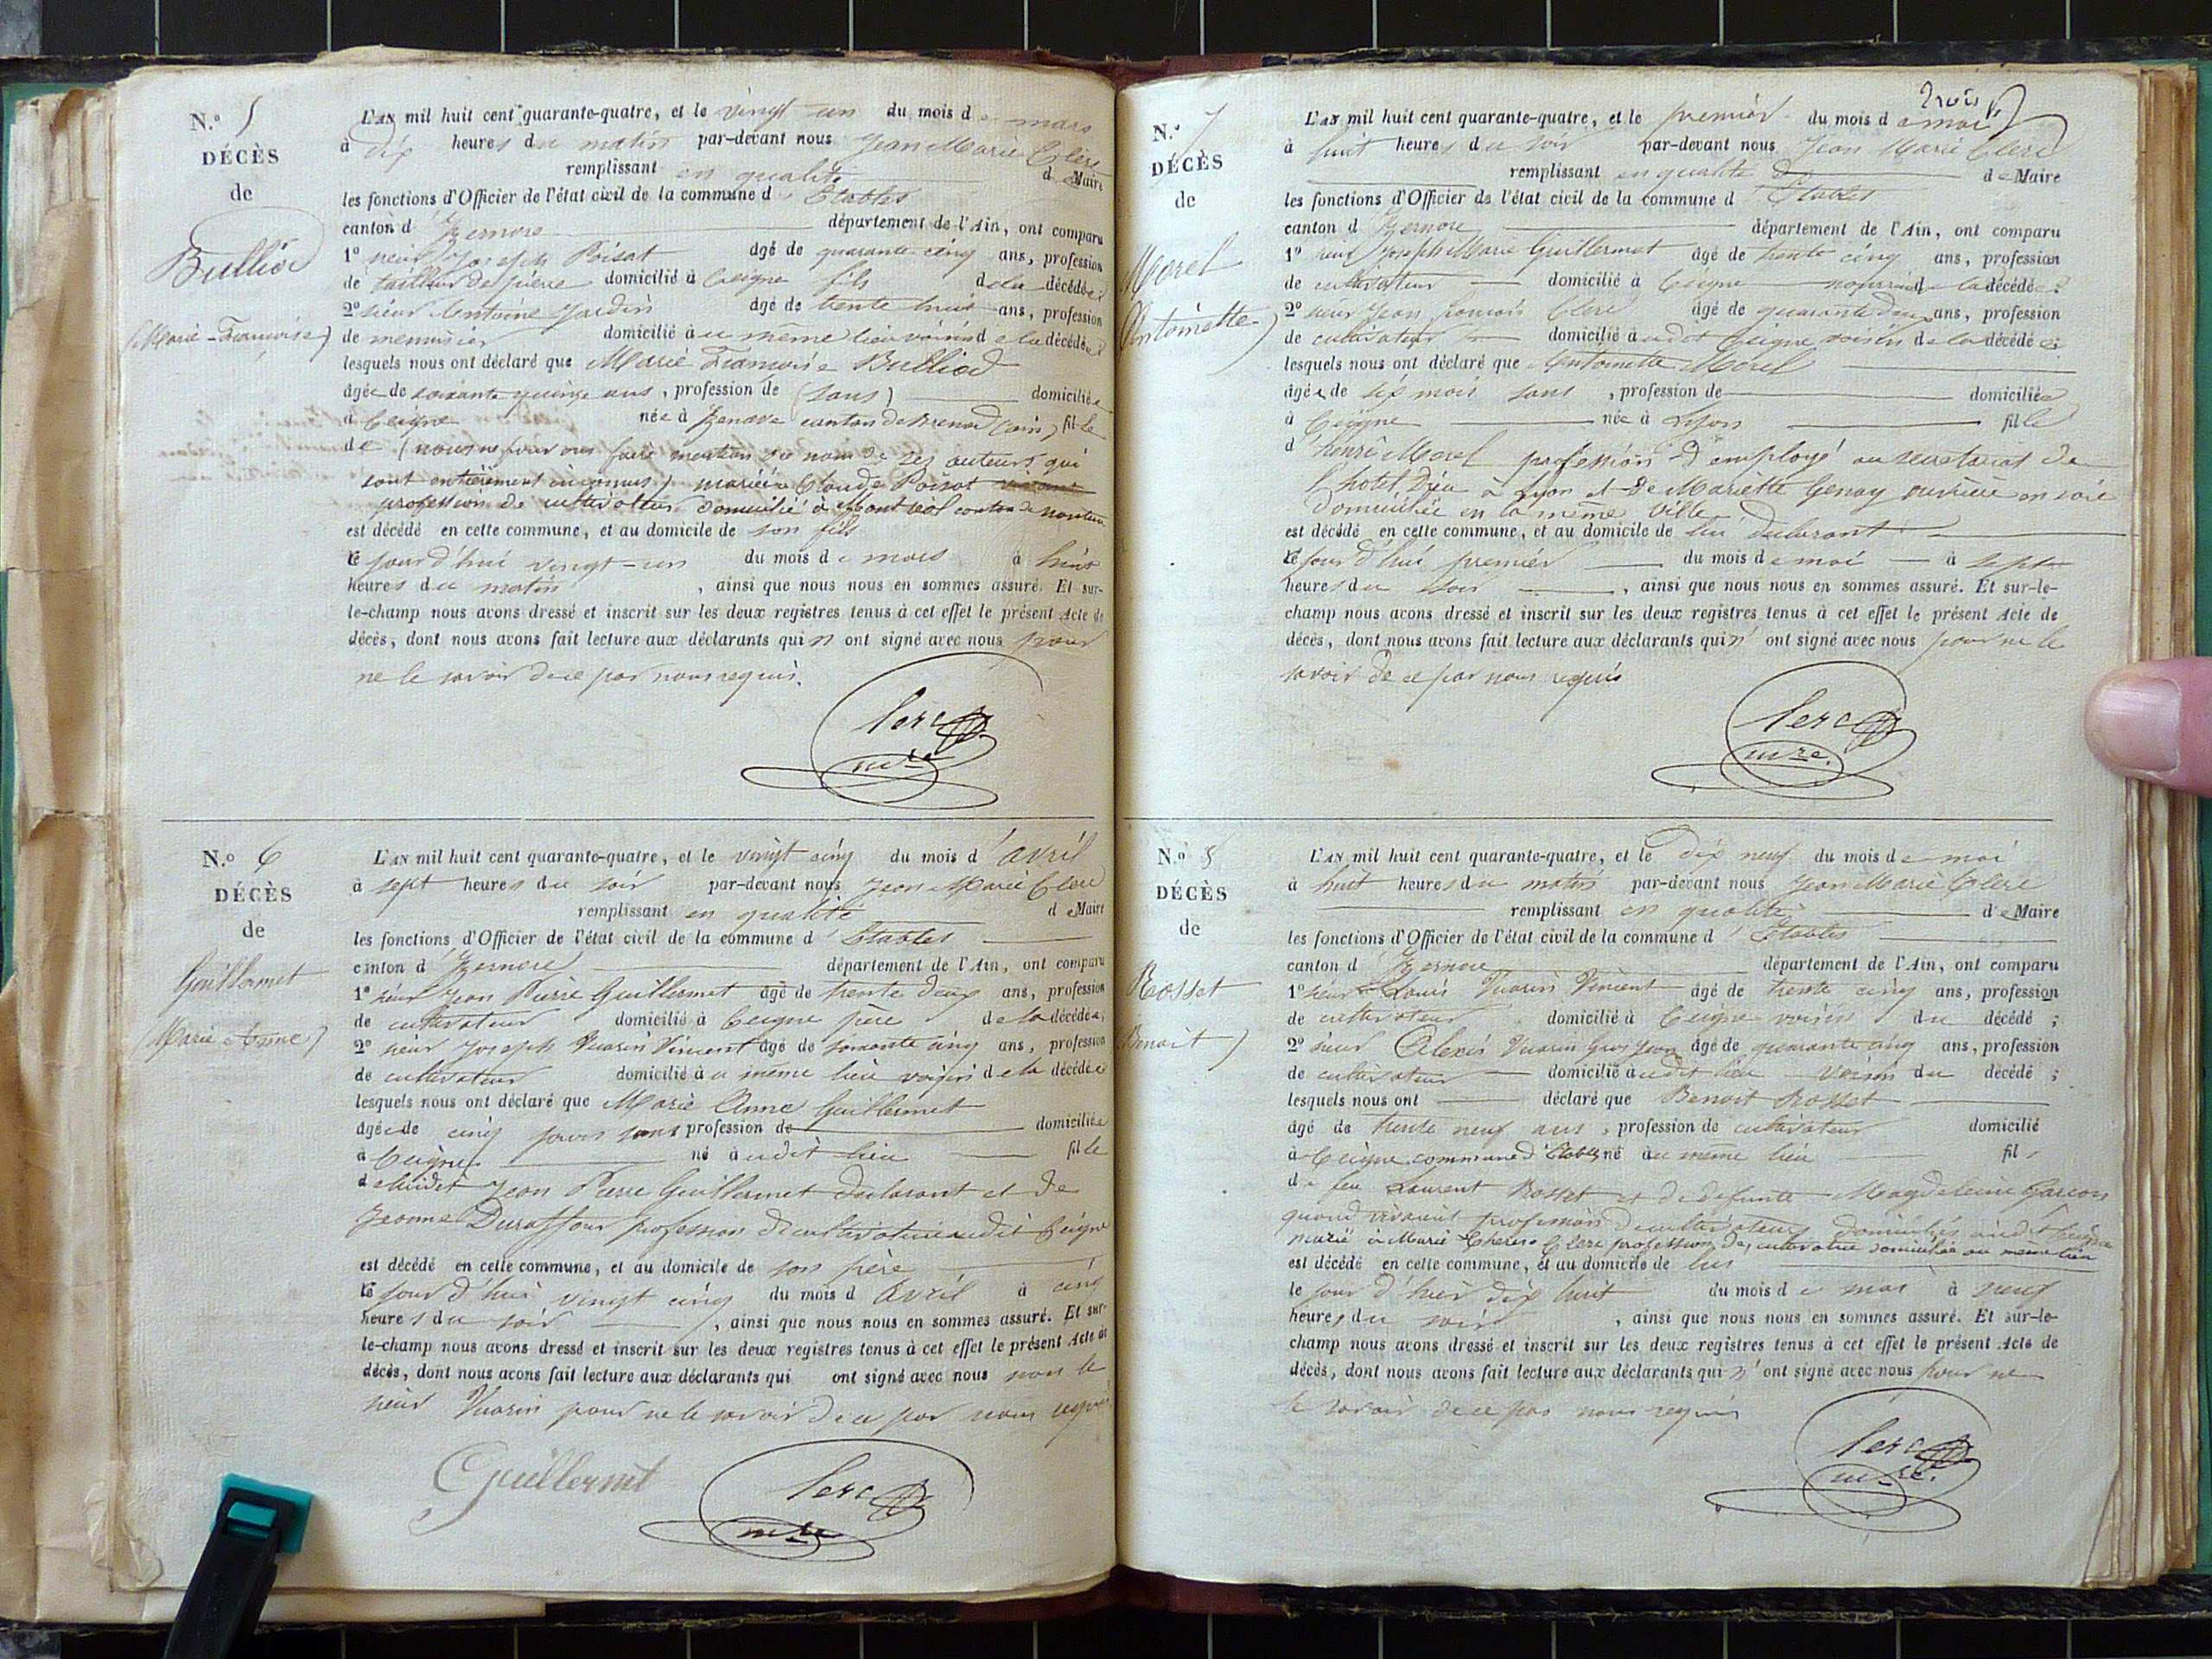 N.º 5
DÉCÈS
de
Bulliod
(Marie-Françoise)
L'AN mil huit cent quarante-quatre, et le vingt un du mois de mars
à dix heures du matin par-devant nous Jean Marie Clerc
remplissant en qualité de Maire
les fonctions d'Officier de l'état civil de la commune d'Etables
canton d'Izernore département de l'Ain, ont comparu
1º sieur Joseph Poisat âgé de quarante cinq ans, profession
de tailleur de pierre domicilié à Ceigne fils de la décédée;
2º sieur Antoine Jardin âgé de trente huit ans, profession
de menuisier domicilié au même lieu voisin de la décédée;
lesquels nous ont déclaré que Marie Françoise Bulliod
âgée de soixante quinze ans, profession de (sans) domiciliée
à Ceigne née à Izenave canton de Brenod (ain) fille
de (nous ne pouvons faire mention du nom de ses auteurs qui
sont entièrement inconnus) mariée à Claude Poisat vivant
profession de cultivateur domicilié à canton de nantua
est décédé en cette commune, et au domicile de son fils
le jour d'hui vingt-un du mois de mars à huit
heures du matin, ainsi que nous nous en sommes assuré. Et sur-
le-champ nous avons dressé et inscrit sur les deux registres tenus à cet effet le présent Acte de
décès, dont nous avons fait lecture aux déclarants qui n'ont signé avec nous pour
ne le savoir de ce par nous requis.
Clerc
mre
N.º 6
DÉCÈS
de
Guillermet
(Marie-Anne)
L'AN mil huit cent quarante-quatre, et le vingt cinq du mois d'avril
à sept heures du soir par-devant nous Jean Marie Clerc
remplissant en qualité de Maire
les fonctions d'Officier de l'état civil de la commune d'Etables
canton d'Izernore département de l'Ain, ont comparu
1º sieur Jean Pierre Guillermet âgé de trente deux ans, profession
de cultivateur domicilié à Ceigne père de la décédée;
2º sieur Joseph Vuarin Vincent âgé de soixante cinq ans, profession
de cultivateur domicilié au même lieu voisin de la décédée
lesquels nous ont déclaré que Marie Anne Guillermet
âgée de cinq jours sans profession de domiciliée
à Ceigne né audit lieu fille
de Jean Pierre Guillermet déclarant et de
Jeanne Duraffour profession de cultivatrice audit Ceigne
est décédé en cette commune, et au domicile de son père
le jour d'hui vingt cinq du mois d'Avril à cinq
heures du soir, ainsi que nous nous en sommes assuré. Et sur-
le-champ nous avons dressé et inscrit sur les deux registres tenus à cet effet le présent Acte de
décès, dont nous avons fait lecture aux déclarants qui ont signé avec nous non le
sieur Vuarin pour ne le savoir de ce par nous requis
Guillermet
Clerc
mre
trois
N.º 7
DÉCÈS
de
Morel
Antoinette)
L'AN mil huit cent quarante-quatre, et le premier du mois de mai
à huit heures du soir par-devant nous Jean Marie Clerc
remplissant en qualité de Maire
les fonctions d'Officier de l'état civil de la commune d'Etables
canton d'Izernore département de l'Ain, ont comparu
1º sieur Joseph Marie Guillermet âgé de trente cinq ans, profession
de cultivateur domicilié à Ceigne de la décédée;
2º sieur Jean François Clerc âgé de quarante deux ans, profession
de cultivateur domicilié audit Ceigne voisin de la décédée;
lesquels nous ont déclaré que Antoinette Morel
âgée de six mois sans, profession de domiciliée
à Ceigne née à Lyon fille
d'henri Morel profession d'employé au secretariat de
l'hotel Dieu à Lyon et de Mariette Genay ouvrière en soie
domiciliée en la même ville
est décédé en cette commune, et au domicile de lui déclarant
le jour d'hui premier du mois de mai à sept
heures du soir, ainsi que nous nous en sommes assuré. Et sur-le-
champ nous avons dressé et inscrit sur les deux registres tenus à cet effet le présent Acte de
décès, dont nous avons fait lecture aux déclarants qui n'ont signé avec nous pour ne le
savoir de ce par nous requis
Clerc
mre.
N.º 8
DÉCÈS
de
Rosset
Benoit)
L'AN mil huit cent quarante-quatre, et le dix neuf du mois de mai
à huit heures du matin par-devant nous Jean Marie Clerc
remplissant en qualité de Maire
les fonctions d'Officier de l'état civil de la commune d'Etables
canton d'Izernore département de l'Ain, ont comparu
1º sieur Louis Vuarin Vincent âgé de trente cinq ans, profession
de cultivateur domicilié à Ceigne voisin du décédé;
2º sieur Alexis Vuarin Gros Jean âgé de quarante cinq ans, profession
de cultivateur domicilié audit lieu voisin du décédé;
lesquels nous ont déclaré que Benoit Rosset
âgé de trente neuf ans, profession de cultivateur domicilié
à Ceigne commune d'Etables né au même lieu fils
de feu Laurent Rosset et de defunte Magdeleine Garcon
quand vivaient profession de cultivateurs domiciliés audit Ceigne
marié à Marie Therese Clerc profession de cultivatrice domiciliée au même lieu
est décédé en cette commune, et au domicile de lui
le jour d'hier dix huit du mois de mai à neuf
heures du soir, ainsi que nous nous en sommes assuré. Et sur-le-
champ nous avons dressé et inscrit sur les deux registres tenus à cet effet le présent Acte de
décès, dont nous avons fait lecture aux déclarants qui n'ont signé avec nous pour ne
le savoir de ce par nous requis
Clerc
mre.